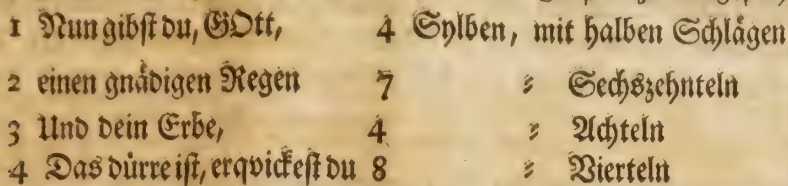 1 Nun gibſt du, GOtt, 4 Sylben, mit halben Schlägen
2 einen gnädigen Regen 7 ⸗ Sechszehnteln
3 Und dein Erbe, 4 ⸗ Achteln
4 Das dürre iſt, erqvickeſt du 8 ⸗ Vierteln